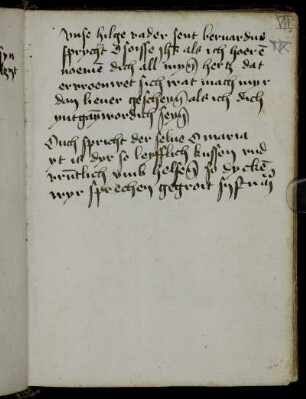 vnse hilge vader sent bernardus
sprycht O soisse yhs als ich hoere
noemē dich all myn hertz dat
ervroeuwet sich wat mach myr
dan lieuer gescheyn als ich dich
yntgaywordich seyn
Ouch spricht der selue O maria
yt is dyr so lefflich kussen vnd
vrūtlich vmb helsen so dycke
wyr sprechen gegroit syst
VII
syn